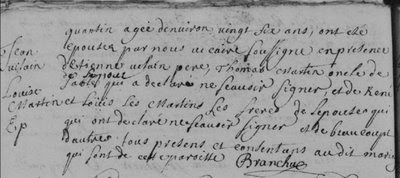 quantin agée denviron vingt six ans, ont eté
epousez par nous vicaire soussigné en presence
Jean
vilain
d'Etienne vilain pere, Thomas Martin oncle de
de lepouse
qui a declaré ne scavoir signer, et de René
Louise
Martin
et Louis les Martins les freres de lepouse qui
Ep
qui ont declaré ne scavoir signer et de beaucoup
d'autres tous presens et consentans audit mariage
qui sont de cette paroisse